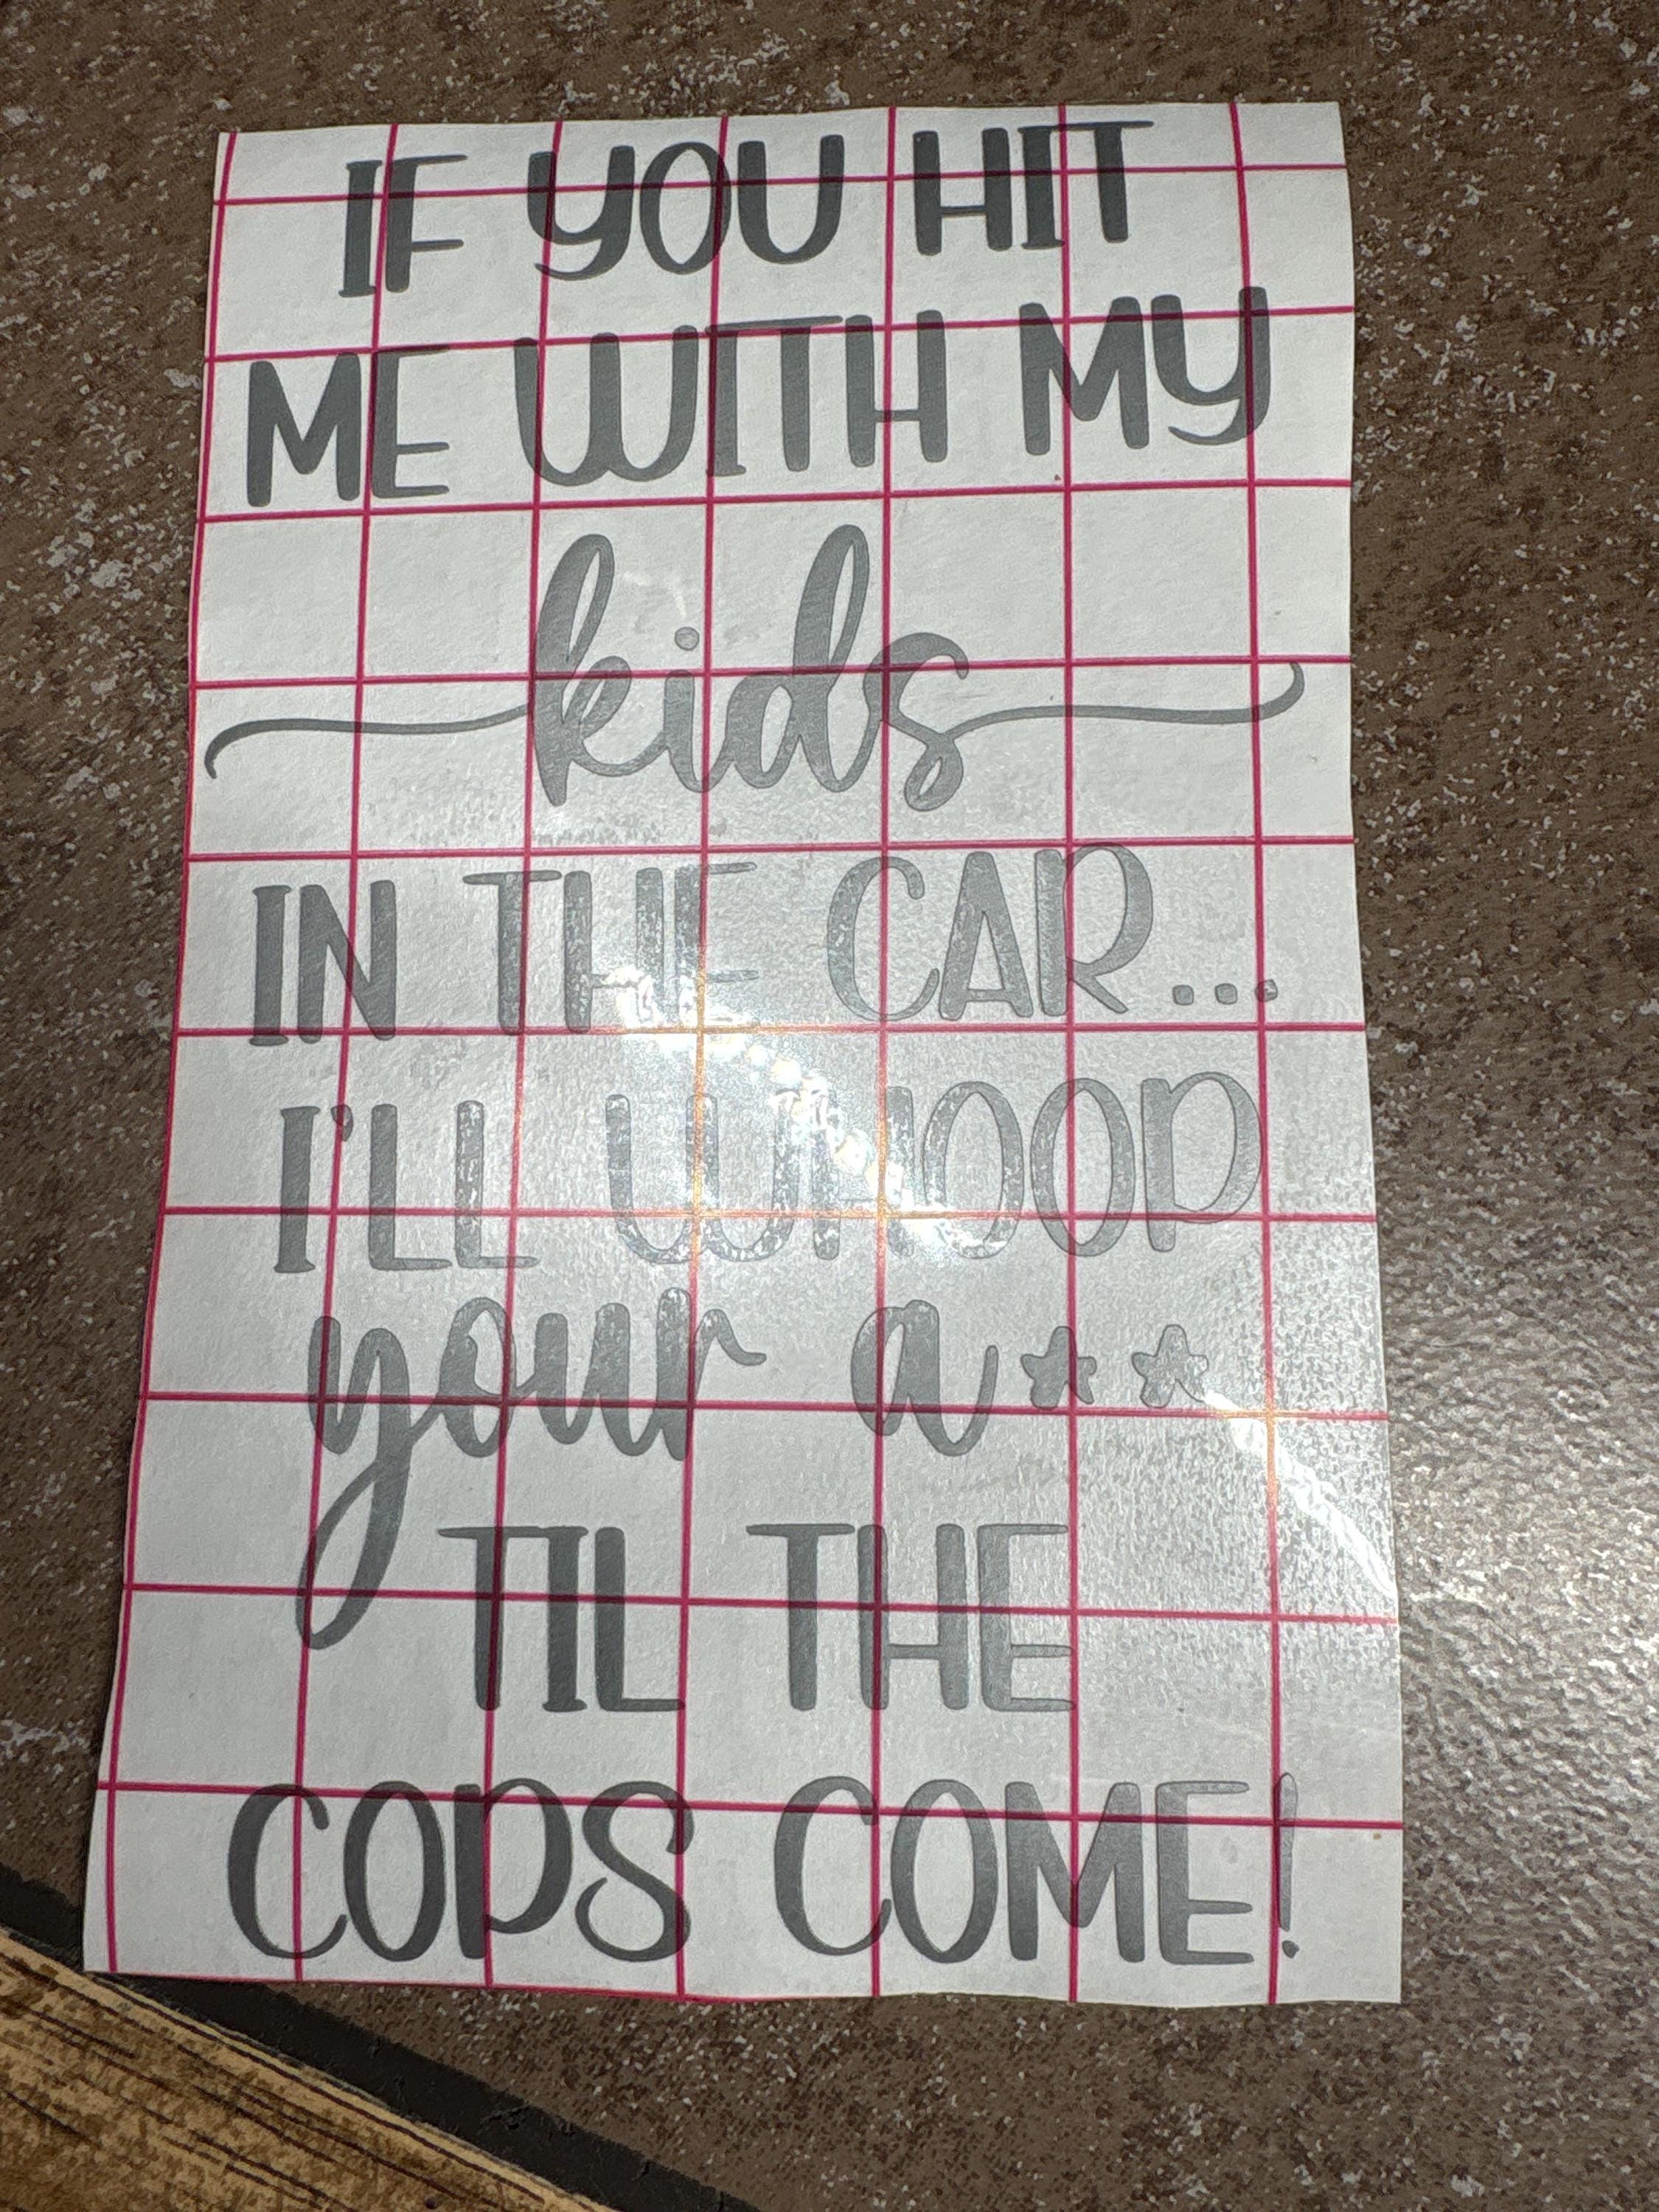 IF YOU HIT
ME WITH MY
kids
IN THE CAR...
I'LL WHOOP
your a**
TIL THE
COPS COME!